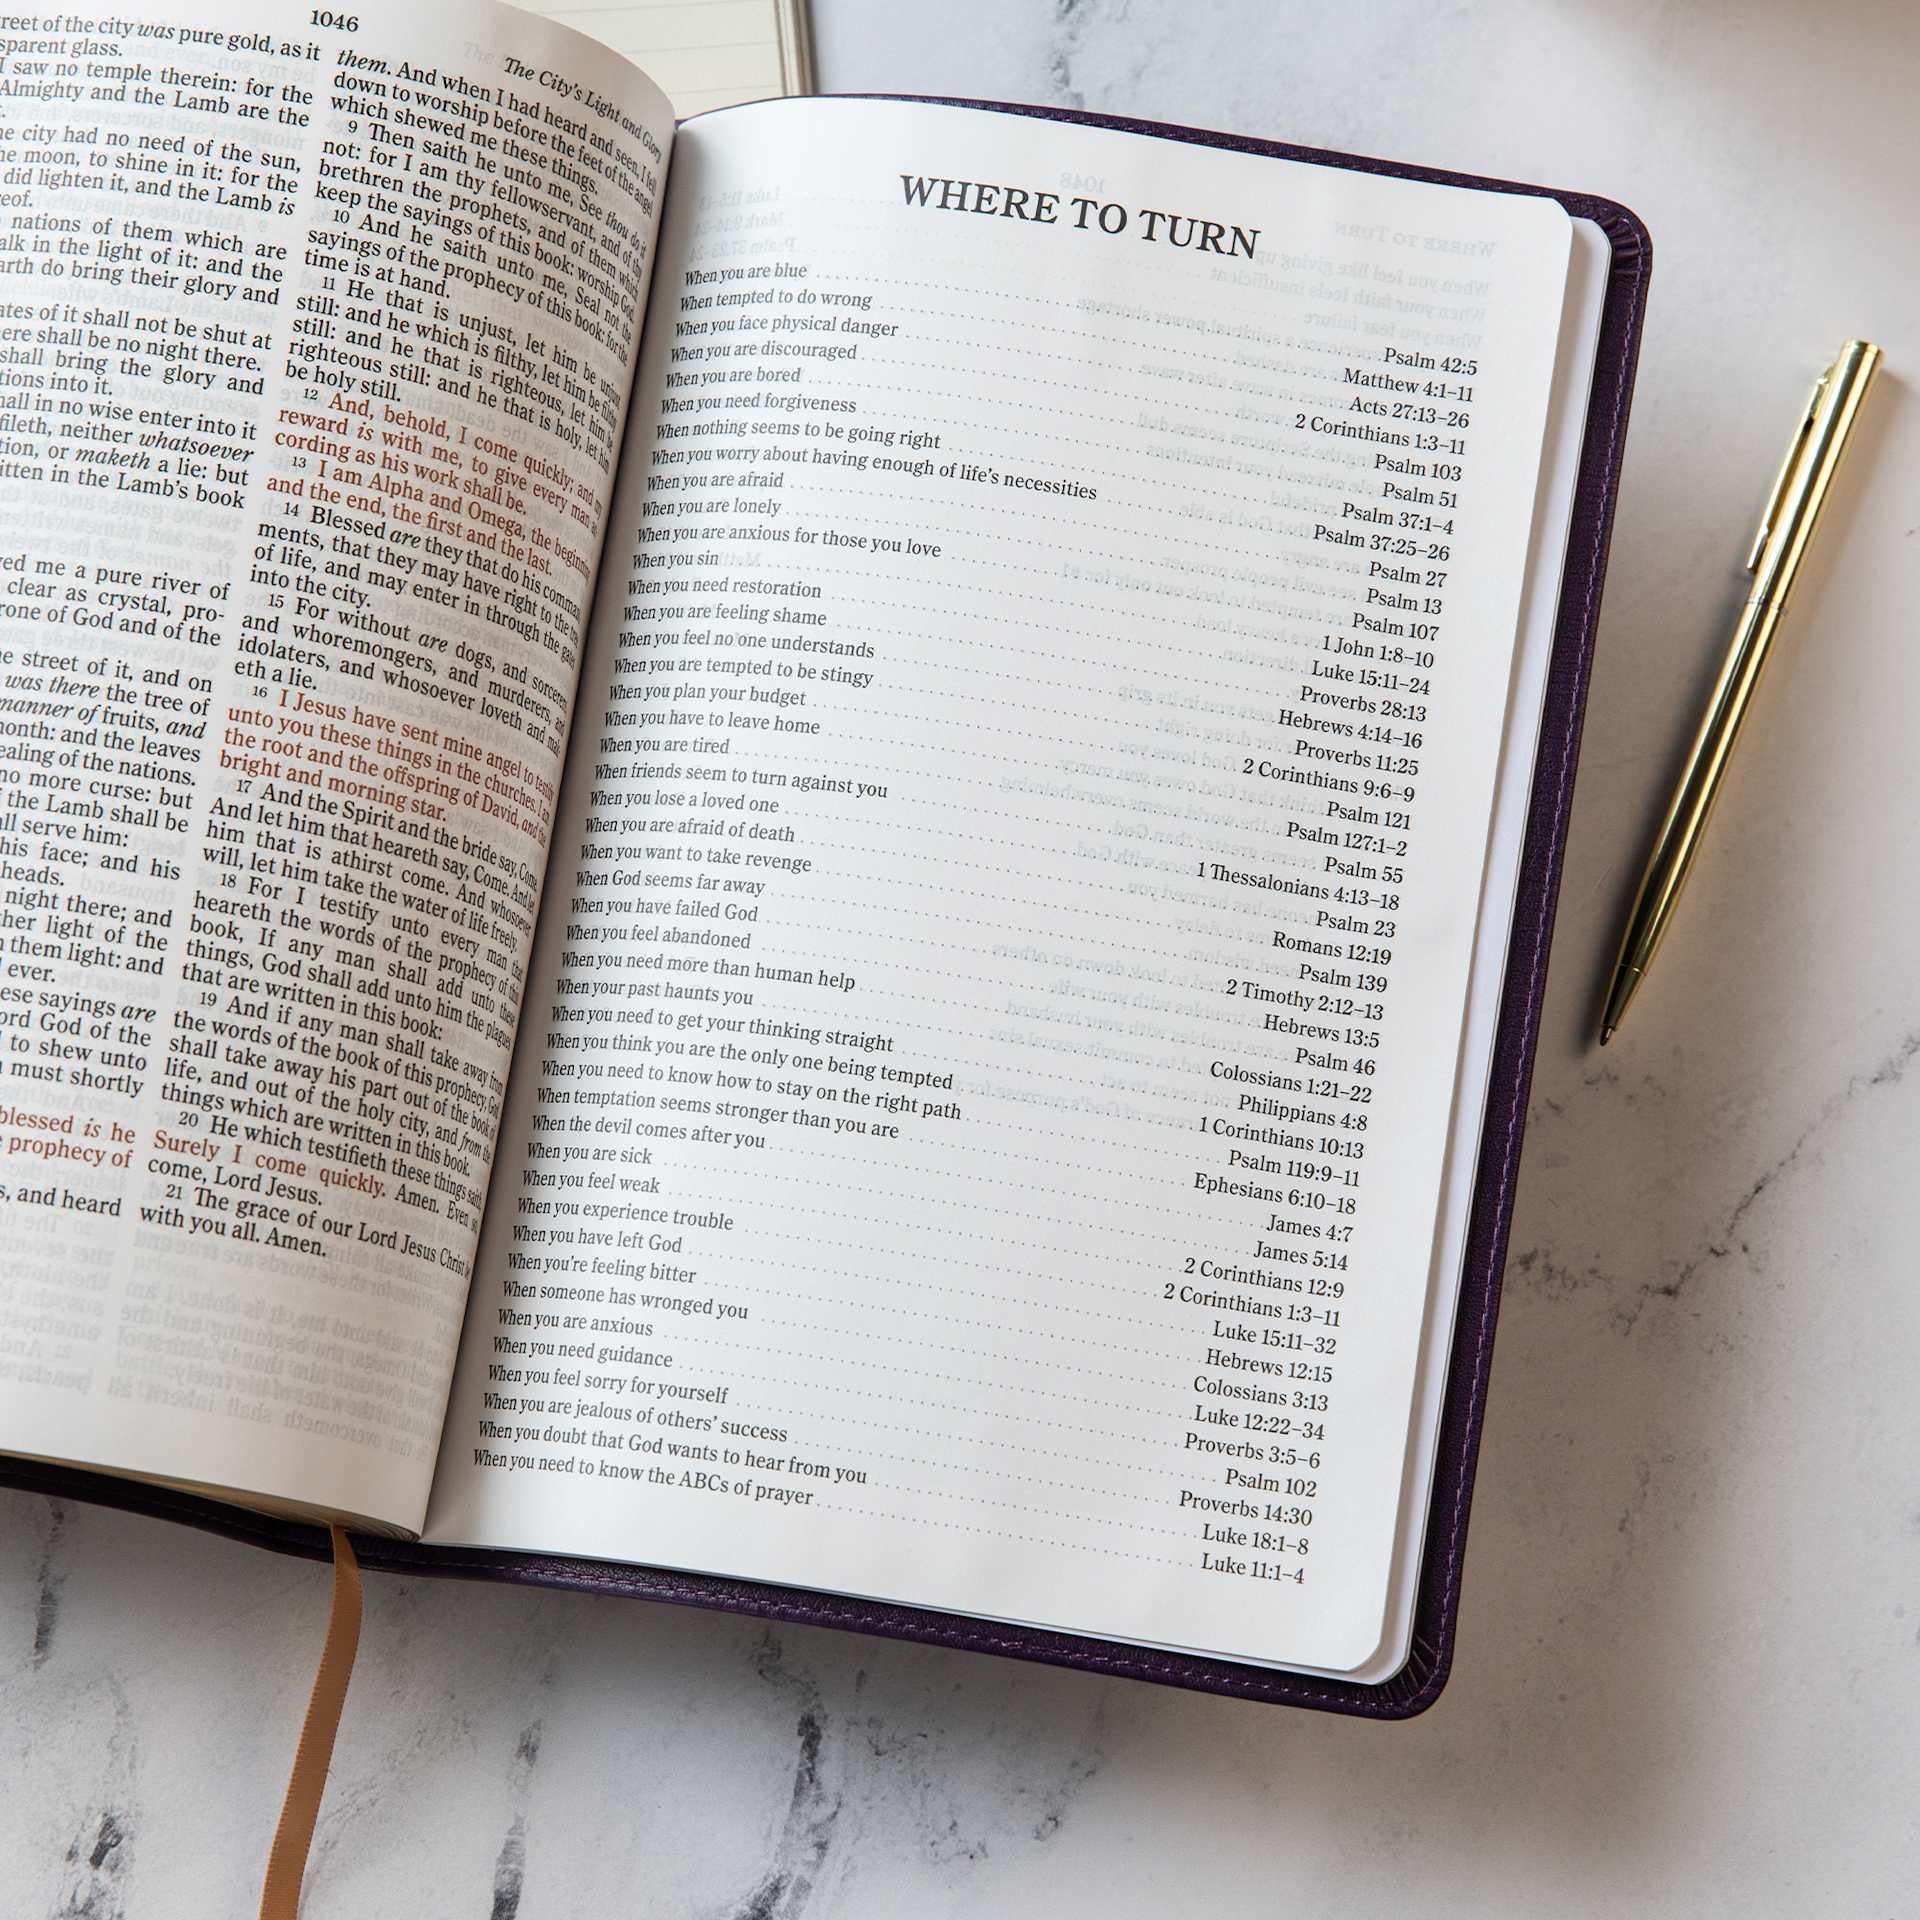 1046
The City's Light and Glory
street of the city was pure gold, as it
sparent glass.
I saw no temple therein: for the
Almighty and the Lamb are the
he city had no need of the sun,
he moon, to shine in it: for the
did lighten it, and the Lamb is
reof.
nations of them which are
alk in the light of it: and the
arth do bring their glory and
ates of it shall not be shut at
ere shall be no night there.
shall bring the glory and
tions into it.
hall in no wise enter into it
fileth, neither whatsoever
tion, or maketh a lie: but
itten in the Lamb's book
ved me a pure river of
clear as crystal, pro-
rone of God and of the
he street of it, and on
was there the tree of
manner of fruits, and
month: and the leaves
ealing of the nations.
no more curse: but
f the Lamb shall be
all serve him:
his face; and his
heads.
night there; and
ther light of the
n them light: and
ever.
ese sayings are
ord God of the
to shew unto
must shortly
blessed is he
prophecy of
s, and heard
them. And when I had heard and seen, I fell
down to worship before the feet of the angel
which shewed me these things.
9 Then saith he unto me, See thou do it
not: for I am thy fellowservant, and of thy
brethren the prophets, and of them which
keep the sayings of this book: worship God.
10 And he saith unto me, Seal not the
sayings of the prophecy of this book: for the
time is at hand.
11 He that is unjust, let him be unjust
still: and he which is filthy, let him be filthy
still: and he that is righteous, let him be
righteous still: and he that is holy, let him
be holy still.
12 And, behold, I come quickly; and my
reward is with me, to give every man ac-
cording as his work shall be.
13 I am Alpha and Omega, the beginning
and the end, the first and the last.
14 Blessed are they that do his command-
ments, that they may have right to the tree
of life, and may enter in through the gates
into the city.
15 For without are dogs, and sorcerers,
and whoremongers, and murderers, and
idolaters, and whosoever loveth and mak-
eth a lie.
16 I Jesus have sent mine angel to testify
unto you these things in the churches. I am
the root and the offspring of David, and the
bright and morning star.
17 And the Spirit and the bride say, Come.
And let him that heareth say, Come. And let
him that is athirst come. And whosoever
will, let him take the water of life freely.
18 For I testify unto every man that
heareth the words of the prophecy of this
book, If any man shall add unto these
things, God shall add unto him the plagues
that are written in this book:
19 And if any man shall take away from
the words of the book of this prophecy, God
shall take away his part out of the book of
life, and out of the holy city, and from the
things which are written in this book.
20 He which testifieth these things saith,
Surely I come quickly. Amen. Even so,
come, Lord Jesus.
21 The grace of our Lord Jesus Christ be
with you all. Amen.
WHERE TO TURN
When you are blue Psalm 42:5
When tempted to do wrong Matthew 4:1–11
When you face physical danger Acts 27:13–26
When you are discouraged 2 Corinthians 1:3–11
When you are bored Psalm 103
When you need forgiveness Psalm 51
When nothing seems to be going right Psalm 37:1–4
When you worry about having enough of life's necessities Psalm 37:25–26
When you are afraid Psalm 27
When you are lonely Psalm 13
When you are anxious for those you love Psalm 107
When you sin 1 John 1:8–10
When you need restoration Luke 15:11–24
When you are feeling shame Proverbs 28:13
When you feel no one understands Hebrews 4:14–16
When you are tempted to be stingy Proverbs 11:25
When you plan your budget 2 Corinthians 9:6–9
When you have to leave home Psalm 121
When you are tired Psalm 127:1–2
When friends seem to turn against you Psalm 55
When you lose a loved one 1 Thessalonians 4:13–18
When you are afraid of death Psalm 23
When you want to take revenge Romans 12:19
When God seems far away Psalm 139
When you have failed God 2 Timothy 2:12–13
When you feel abandoned Hebrews 13:5
When you need more than human help Psalm 46
When your past haunts you Colossians 1:21–22
When you need to get your thinking straight Philippians 4:8
When you think you are the only one being tempted 1 Corinthians 10:13
When you need to know how to stay on the right path Psalm 119:9–11
When temptation seems stronger than you are Ephesians 6:10–18
When the devil comes after you James 4:7
When you are sick James 5:14
When you feel weak 2 Corinthians 12:9
When you experience trouble 2 Corinthians 1:3–11
When you have left God Luke 15:11–32
When you're feeling bitter Hebrews 12:15
When someone has wronged you Colossians 3:13
When you are anxious Luke 12:22–34
When you need guidance Proverbs 3:5–6
When you feel sorry for yourself Psalm 102
When you are jealous of others' success Proverbs 14:30
When you doubt that God wants to hear from you Luke 18:1–8
When you need to know the ABCs of prayer Luke 11:1–4